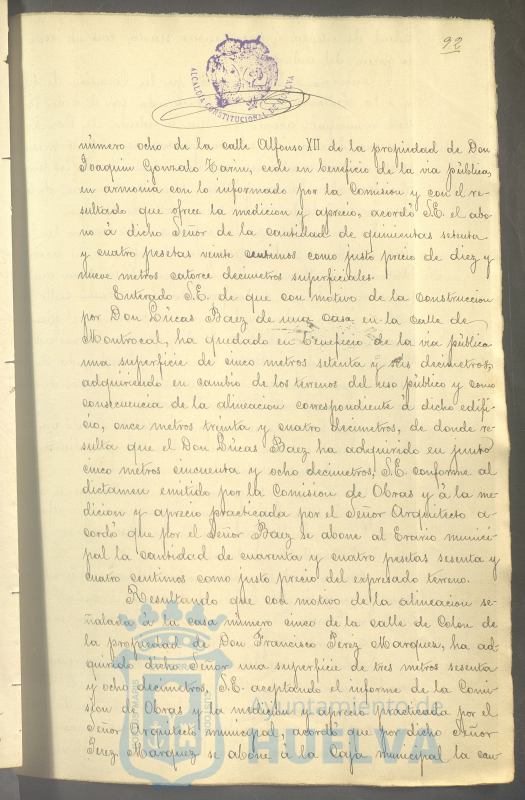 92
ALCALDIA CONSTITUCIONAL DE HUELVA
número ocho de la calle Alfonso XII de la propiedad de Don
Joaquin Gonzalo Tarin, cede en beneficio de la via pública,
en armonia con lo informado por la Comision y con el re-
sultado que ofrece la medicion y aprecio, acordó S.E. el abo-
no á dicho Señor de la cantidad de quinientas setenta
y cuatro pesetas veinte centimos como justo precio de diez y
nueve metros catorce decimetros superficiales.
Enterado S.E. de que con motivo de la construccion
por Don Lúcas Baez de una casa en la calle de
Montrocal, ha quedado en beneficio de la via pública
una superficie de cinco metros setenta y seis decimetros,
adquiriendo en cambio de los terrenos del uso público y como
consecuencia de la alineacion correspondiente á dicho edifi-
cio, once metros treinta y cuatro decimetros, de donde re-
sulta que el Don Lúcas Baez ha adquirido en junto
cinco metros cincuenta y ocho decimetros, S.E. conforme al
dictamen emitido por la Comision de Obras y á la me-
dicion y aprecio practicada por el Señor Arquitecto a-
cordó que por el Señor Baez se abone al Erario munici-
pal la cantidad de cuarenta y cuatro pesetas sesenta y
cuatro centimos como justo precio del expresado terreno.
Resultando que con motivo de la alineacion se-
ñalada á la casa número cinco de la calle de Colon de
la propiedad de Don Francisco Perez Marques, ha ad-
quirido dicho Señor una superficie de tres metros sesenta
y ocho decimetros, S.E. aceptando el informe de la Comi-
sion de Obras y la medicion y aprecio practicada por el
Señor Arquitecto municipal, acordó que por dicho Señor
Perez Marquez se abone á la Caja municipal la can
Ayuntamiento de
HUELVA